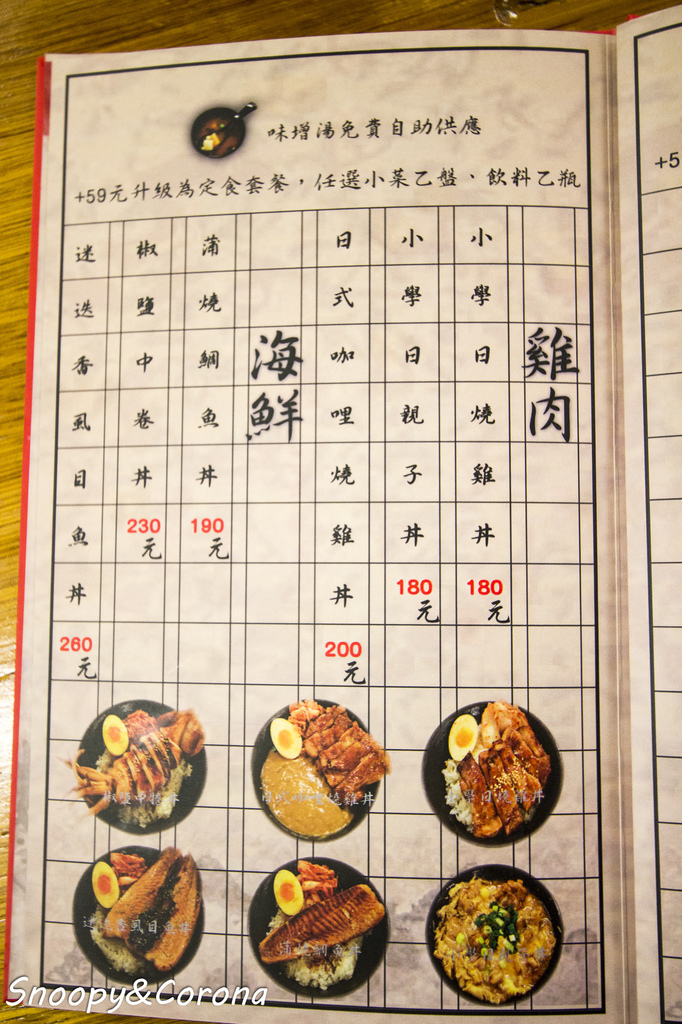 味增湯免費自助供應
+59元升級為定食套餐，任選小菜乙盤、飲料乙瓶
雞肉
小學日燒雞丼 180元
小學日親子丼 180元
日式咖哩燒雞丼 200元
海鮮
蒲燒鯛魚丼 190元
椒鹽中卷丼 230元
迷迭香虱目魚丼 260元
+5
迷迭香虱目魚丼
蒲燒鯛魚丼
Snoopy&Corona